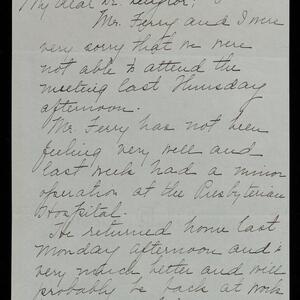 My dear Dr.
Mr. Ferry and I were
very sorry that we were
not able to attend the
meeting last Thursday
afternoon.
Mr. Ferry has not been
feeling very well and
last week had a minor
operation at the Presbyterian
Hospital.
He returned home last
Monday afternoon and is
very much better and will
probably be back at work